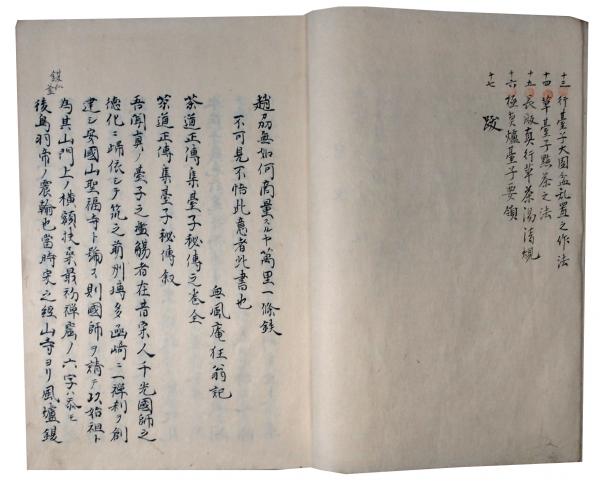 十三 行臺子大圓盆乱置之作法
十四 草臺子點茶之法
十五 長板真行草茶湯清規
十六 極真爐臺子要領
十七 跋
趙州無如何商量スルヤ萬里一條鉄
不可見不悟此意者此書也
無風庵狂翁記
茶道正傳集臺子秘傳之卷全
茶道正傳集臺子秘傳叙
吾聞真ノ臺子之濫觴者在昔宋人千光國師之
德化ニ歸依シテ筑之前州博多函崎ニ一禅刹ヲ創
建シ安國山聖福寺ト論ス則國師ヲ請テ以始祖ト
為其山門上ノ横額ノ扶桑最初禅窟ノ六字ハ忝モ
後鳥羽帝ノ震翰也當時宋之經山寺ヨリ風爐鍚